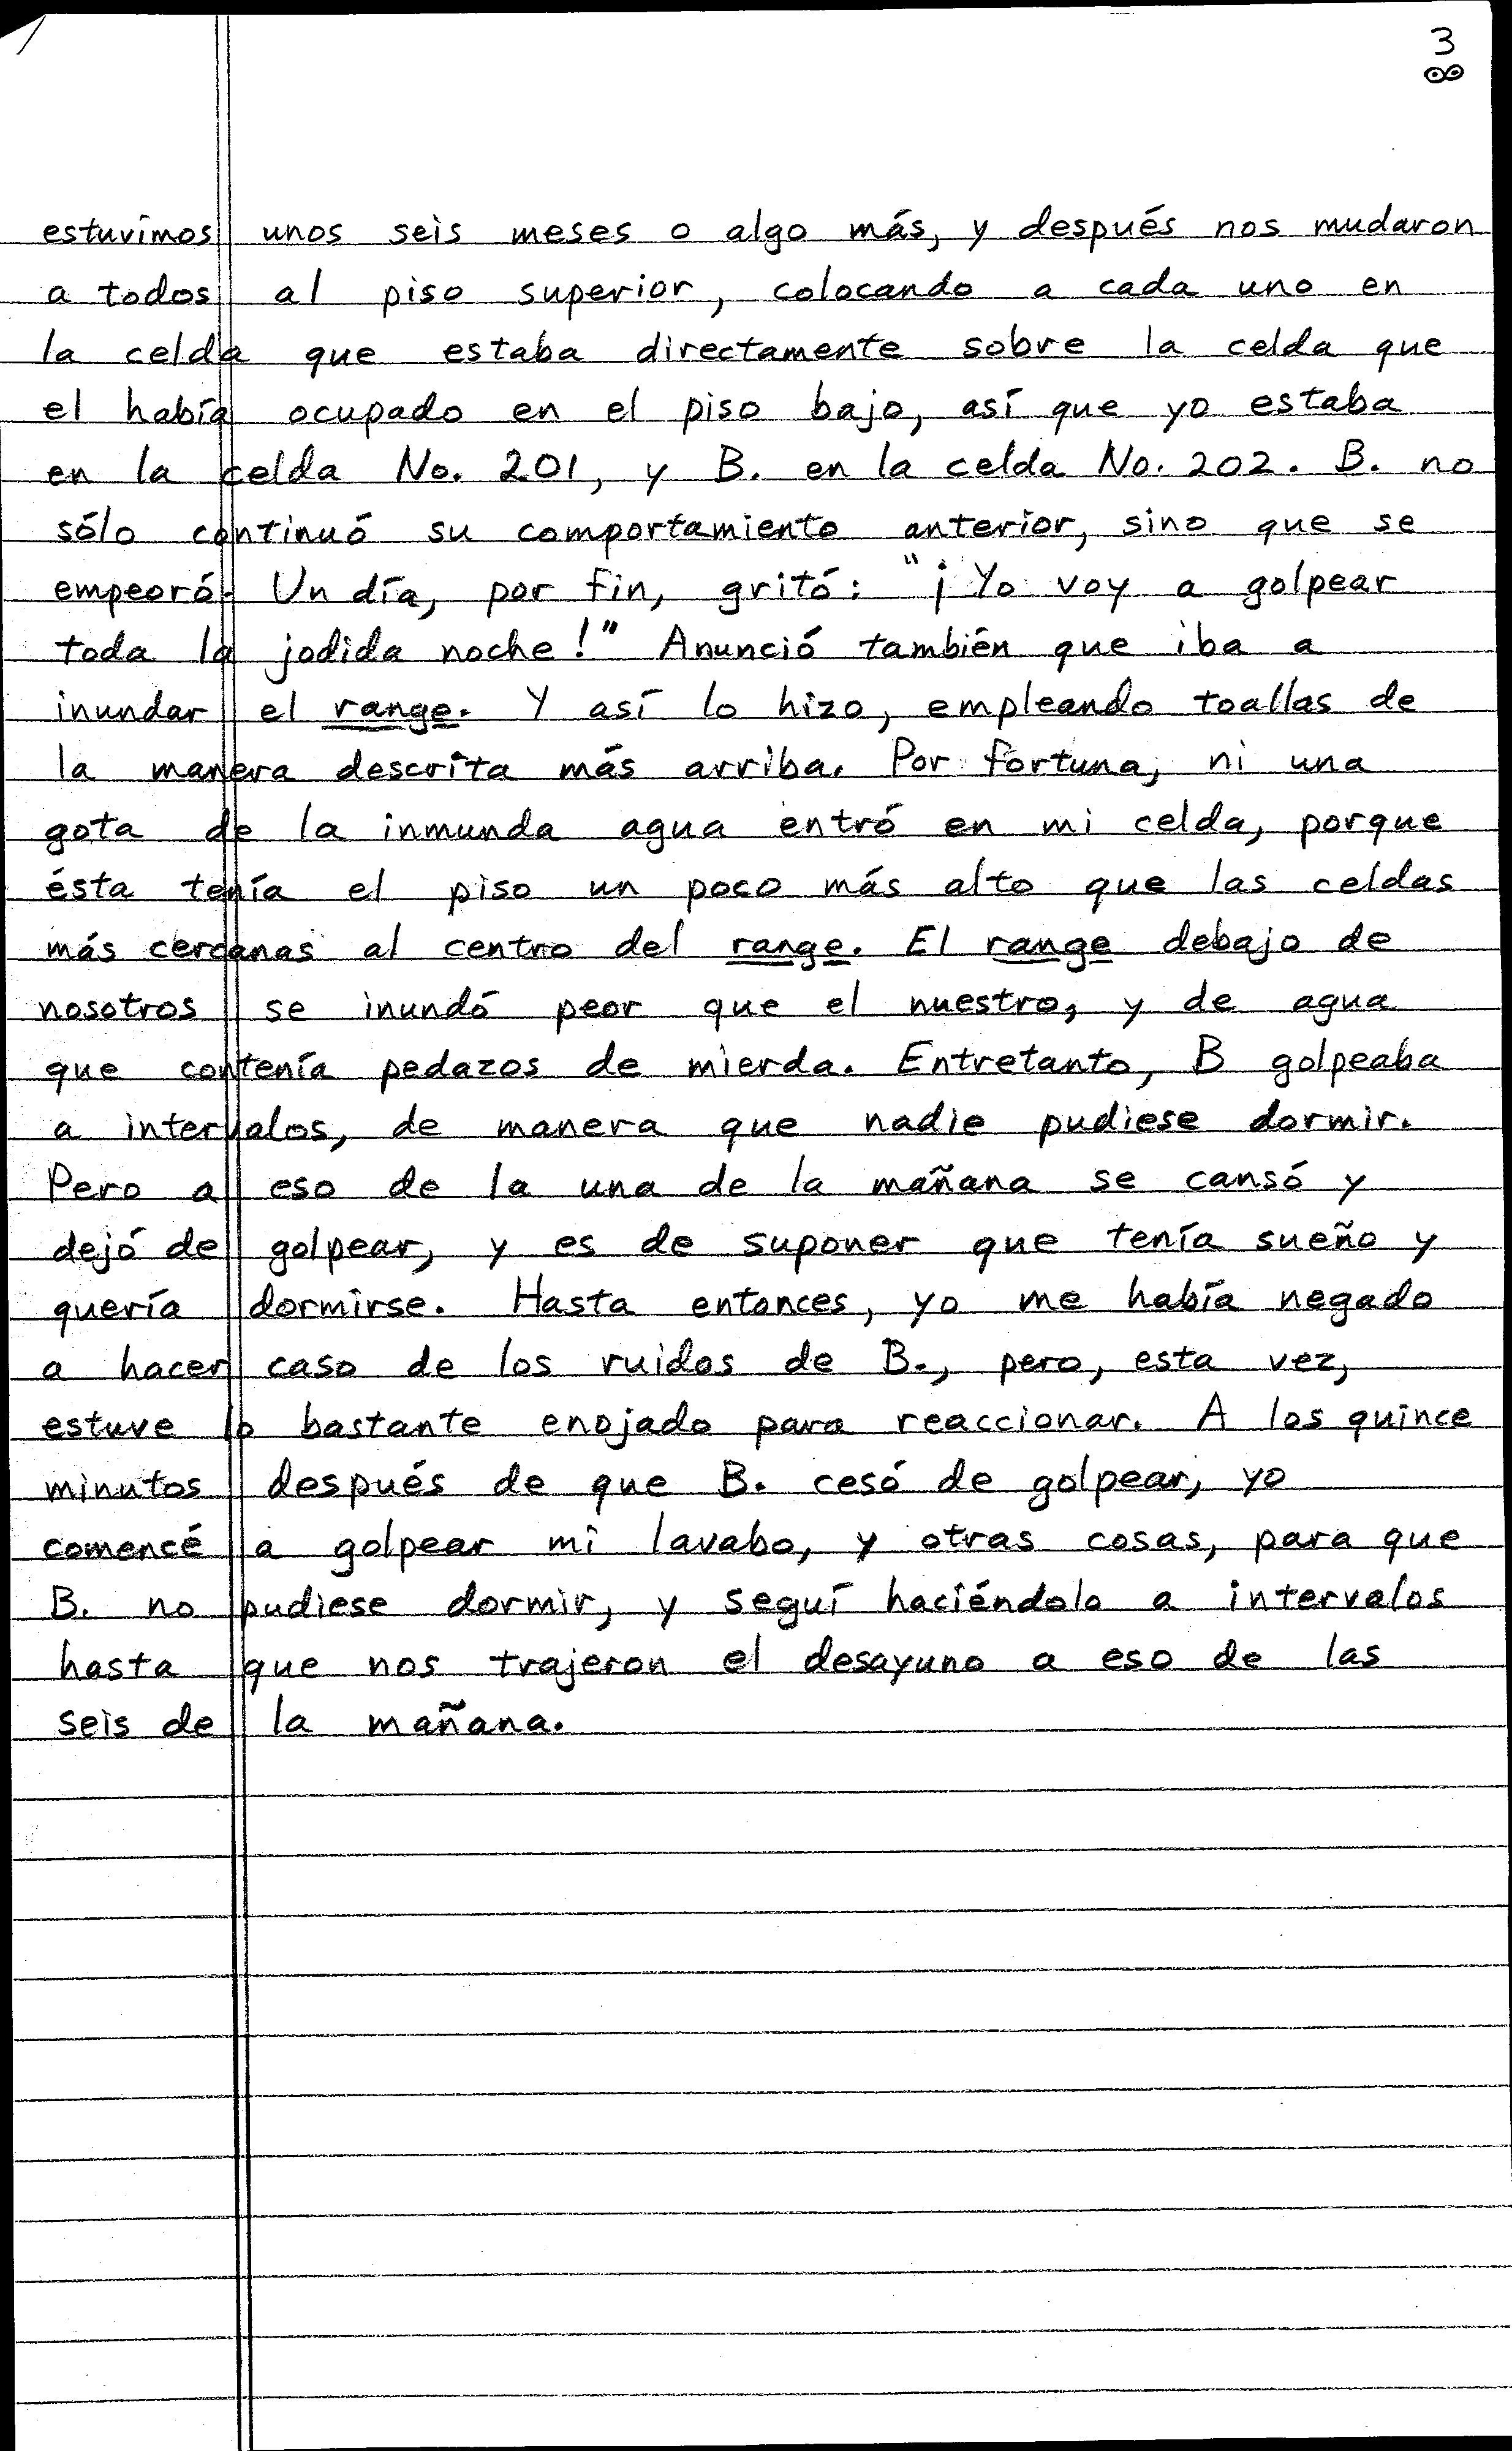 3
∞
estuvimos unos seis meses o algo más, y después nos mudaron
a todos al piso superior, colocando a cada uno en
la celda que estaba directamente sobre la celda que
el había ocupado en el piso bajo, así que yo estaba
en la celda No. 201, y B. en la celda No. 202. B. no
sólo continuó su comportamiento anterior, sino que se
empeoró. Un día, por fin, gritó: "¡Yo voy a golpear
toda la jodida noche!" Anunció también que iba a
inundar el range. Y así lo hizo, empleando toallas de
la manera descrita más arriba. Por fortuna, ni una
gota de la inmunda agua entró en mi celda, porque
ésta tenía el piso un poco más alto que las celdas
más cercanas al centro del range. El range debajo de
nosotros se inundó peor que el nuestro, y de agua
que contenía pedazos de mierda. Entretanto, B golpeaba
a intervalos, de manera que nadie pudiese dormir.
Pero a eso de la una de la mañana se cansó y
dejó de golpear, y es de suponer que tenía sueño y
quería dormirse. Hasta entonces, yo me había negado
a hacer caso de los ruidos de B., pero, esta vez,
estuve lo bastante enojado para reaccionar. A los quince
minutos después de que B. cesó de golpear, yo
comencé a golpear mi lavabo, y otras cosas, para que
B. no pudiese dormir, y seguí haciéndolo a intervalos
hasta que nos trajeron el desayuno a eso de las
seis de la mañana.